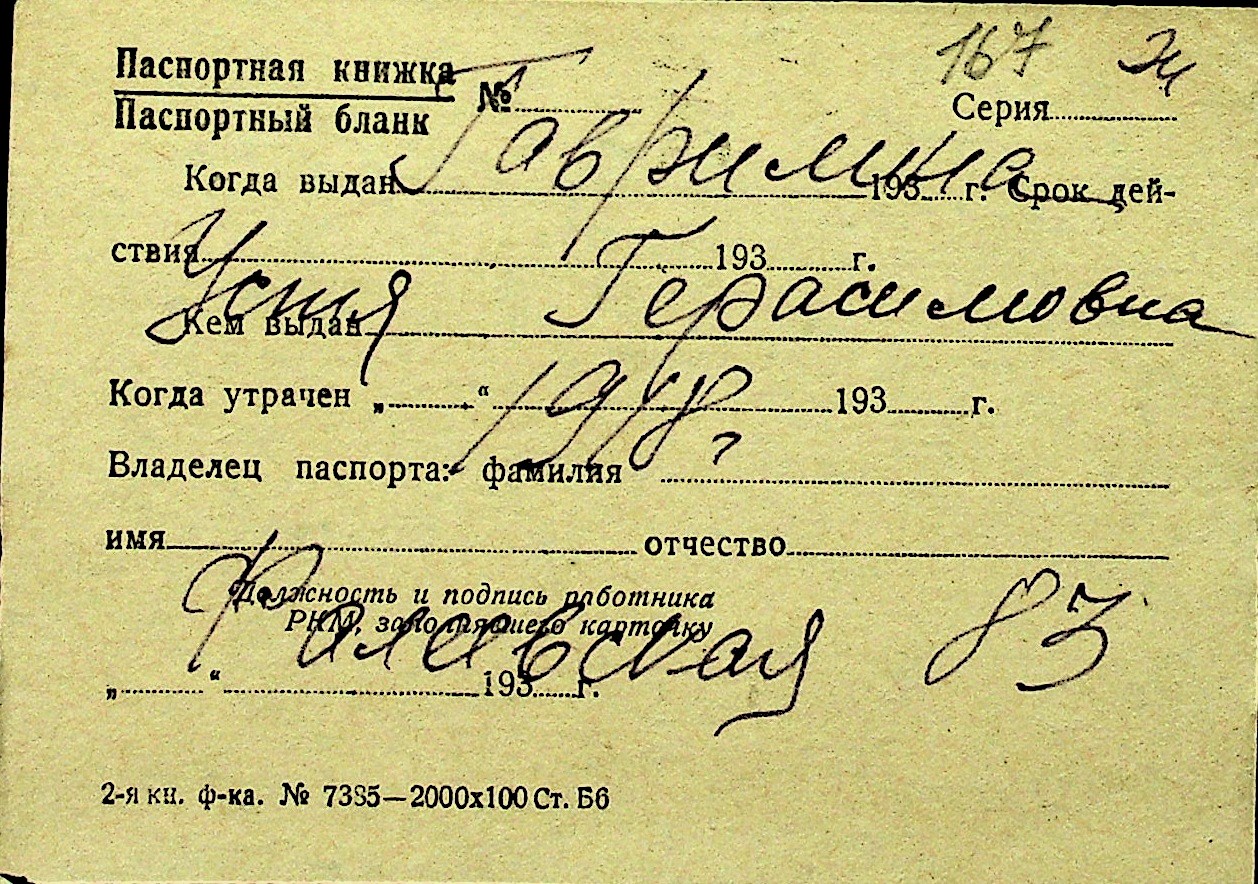 167 Эк
Паспортная книжка
Паспортный бланк № Серия
Гаврилина
Когда выдан 193 г. Срок дей-
ствия 193 г.
Устя Герасимовна
Кем выдан
Когда утрачен „ “ 193 г.
1918,
Владелец паспорта: фамилия
имя отчество
Должность и подпись работника
РКМ, заполнившего карточку
Филевская 83
„ “ 193 г.
2-я кн. ф-ка. № 7385—2000х100 Ст. Б6